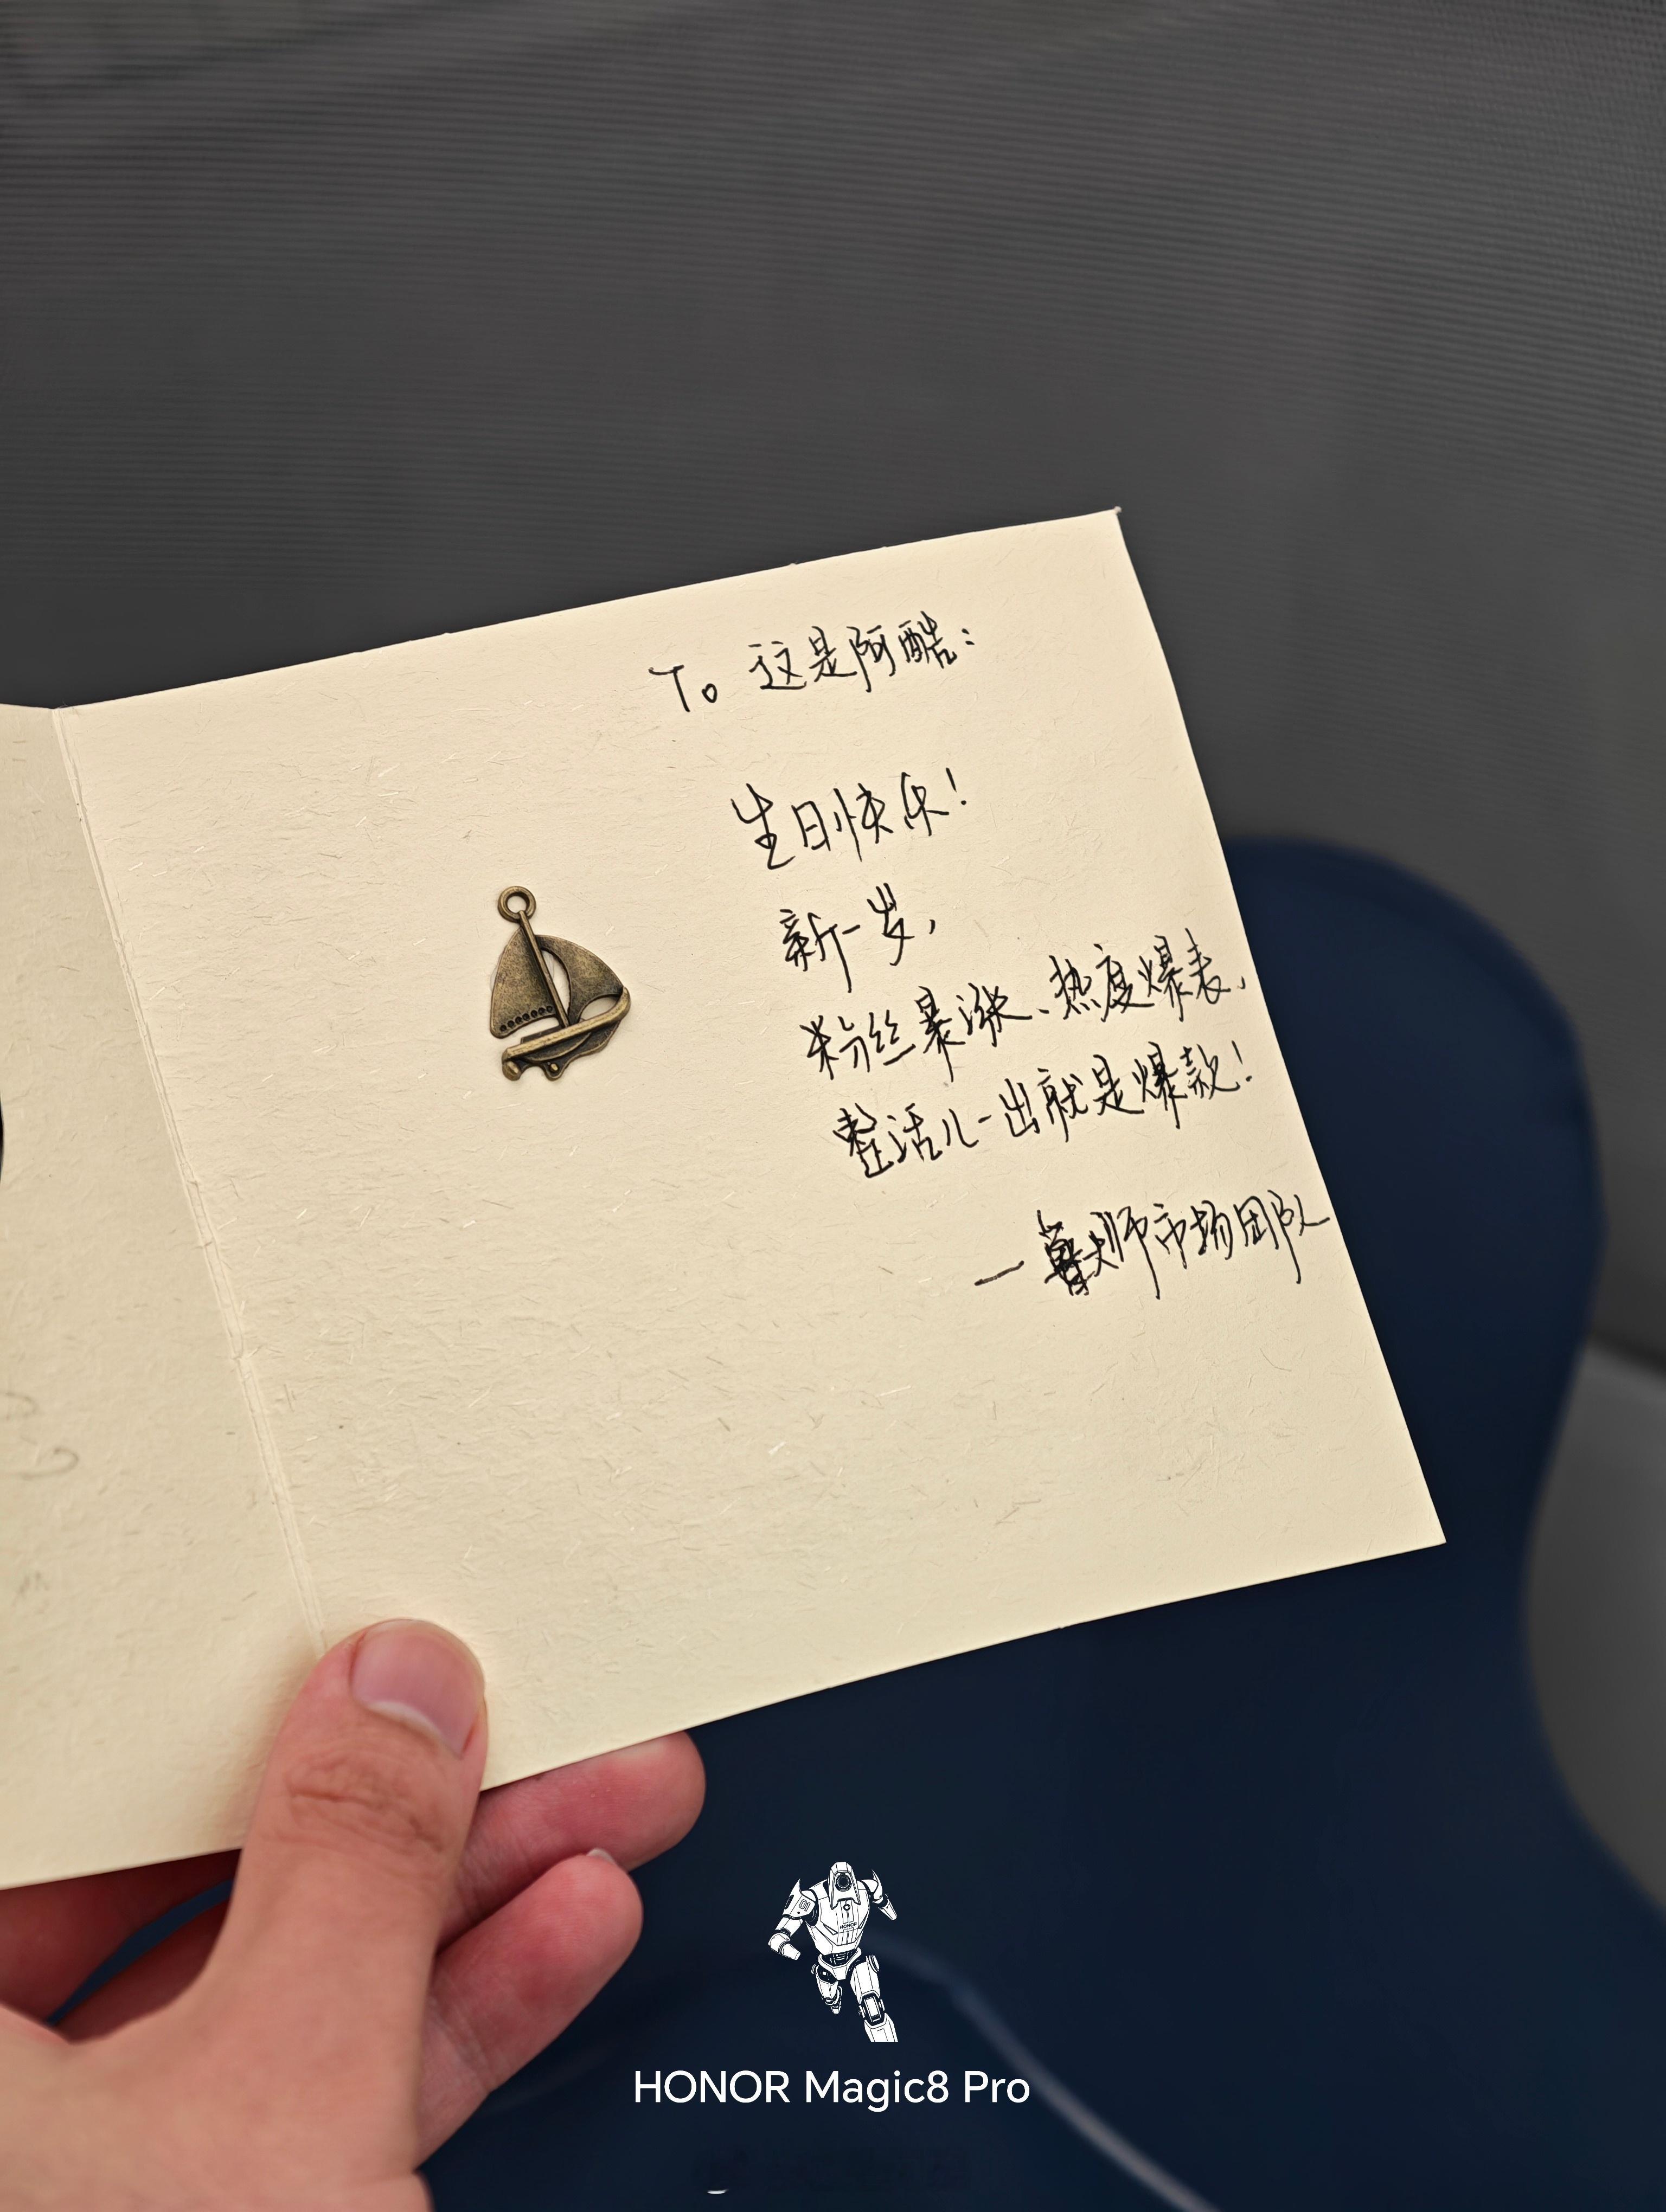 To 这是阿酷：
生日快乐！
新一岁，
粉丝暴涨、热度爆表、
整活儿一出就是爆款！
—鲁大师市场团队
HONOR Magic8 Pro